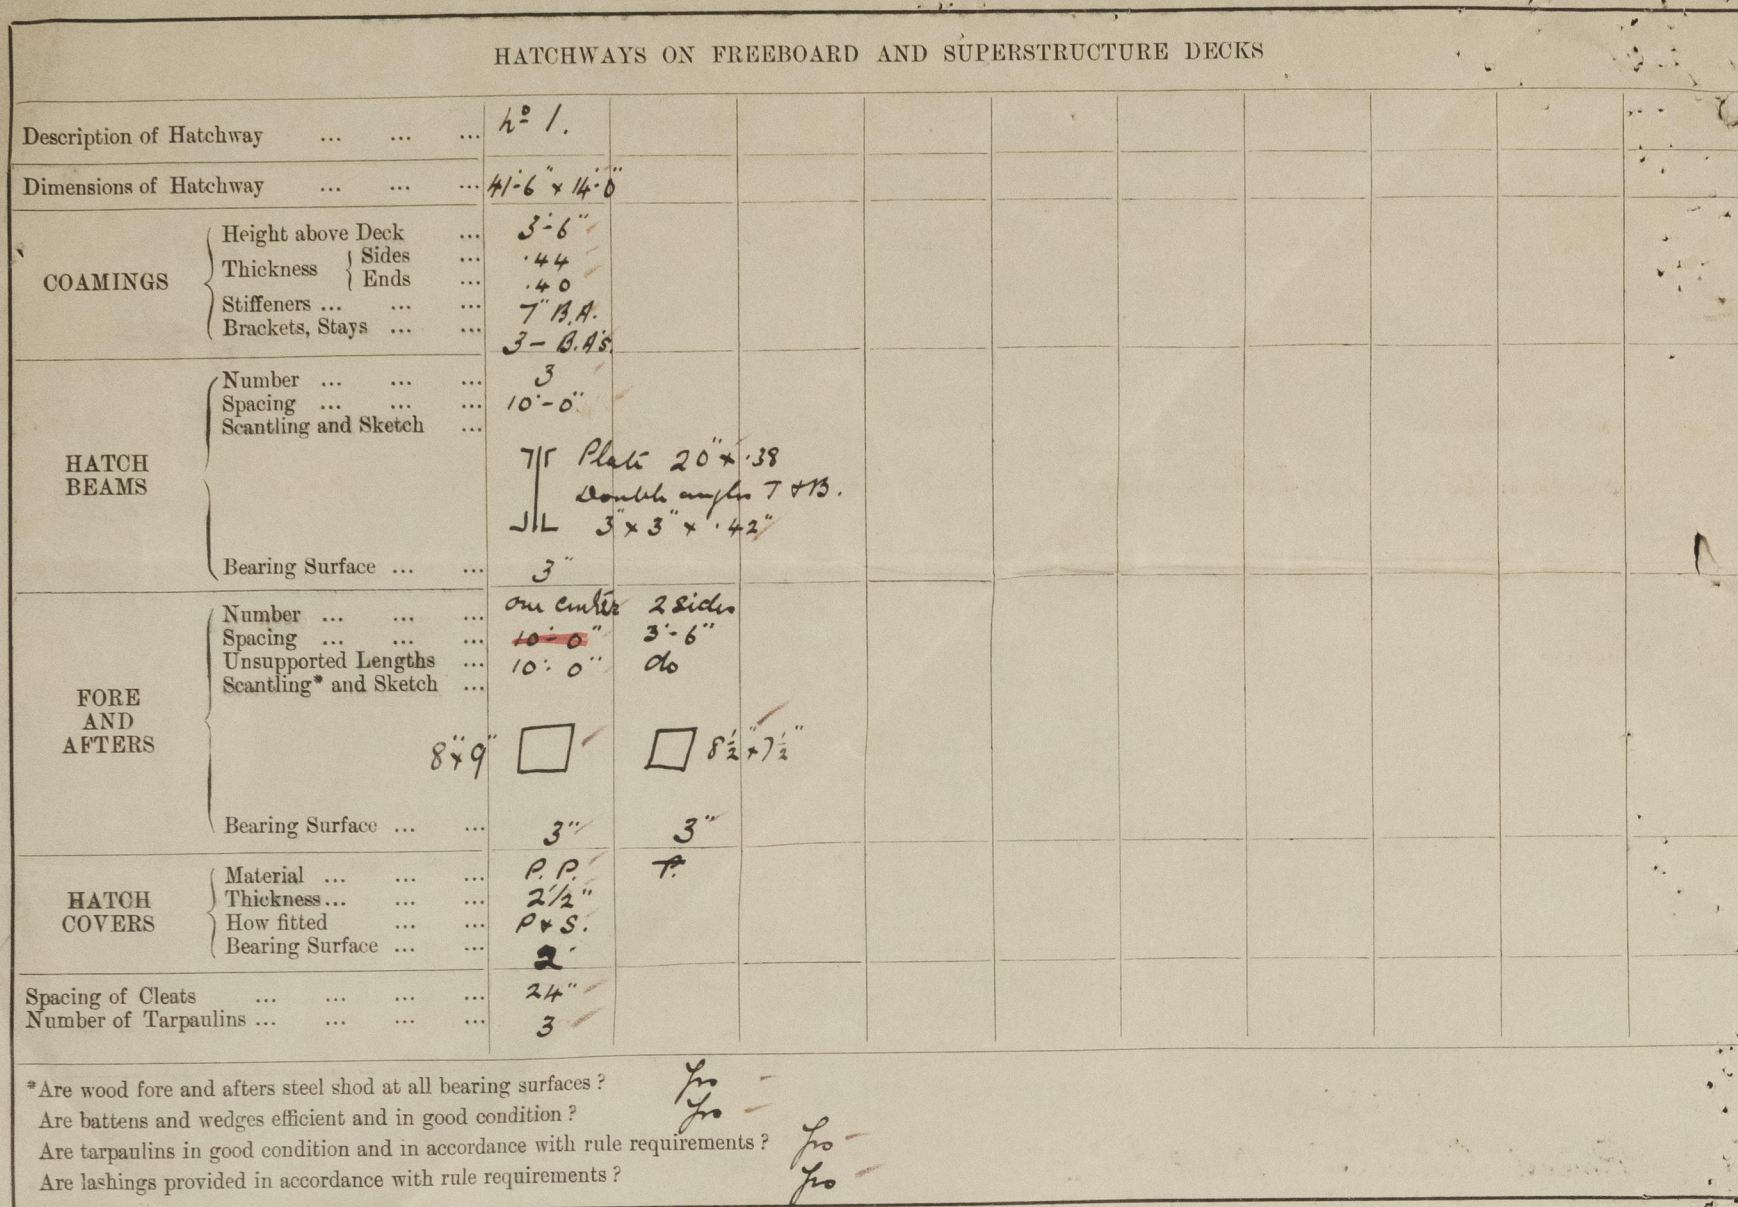 HATCHWAYS ON FREEBOARD AND SUPERSTRUCTURE DECKS
Description of Hatchway ... ... ... No 1.
Dimensions of Hatchway ... ... ... 41'-6" x 14'-0"
COAMINGS
Height above Deck ... 3'-6"
Thickness { Sides ... .44
Ends ... .40
Stiffeners ... ... ... 7" B.A.
Brackets, Stays ... ... 3 - B.A's.
HATCH BEAMS
Number ... ... ... 3
Spacing ... ... ... 10'-0"
Scantling and Sketch ...
Plate 20" x .38
Double angles T & B.
3" x 3" x .42"
Bearing Surface ... ... 3"
FORE AND AFTERS
Number ... ... ... one center 2 sides
Spacing ... ... ... 10'-0" 3'-6"
Unsupported Lengths ... 10'-0" do
Scantling* and Sketch ...
8" x 9" 8½" x 7½"
Bearing Surface ... ... 3" 3"
HATCH COVERS
Material ... ... ... P. P. P.
Thickness ... ... ... 2½"
How fitted ... ... P & S.
Bearing Surface ... ... 2"
Spacing of Cleats ... ... ... ... 24"
Number of Tarpaulins ... ... ... ... 3
*Are wood fore and afters steel shod at all bearing surfaces? Yes -
Are battens and wedges efficient and in good condition? Yes -
Are tarpaulins in good condition and in accordance with rule requirements? Yes -
Are lashings provided in accordance with rule requirements? Yes -